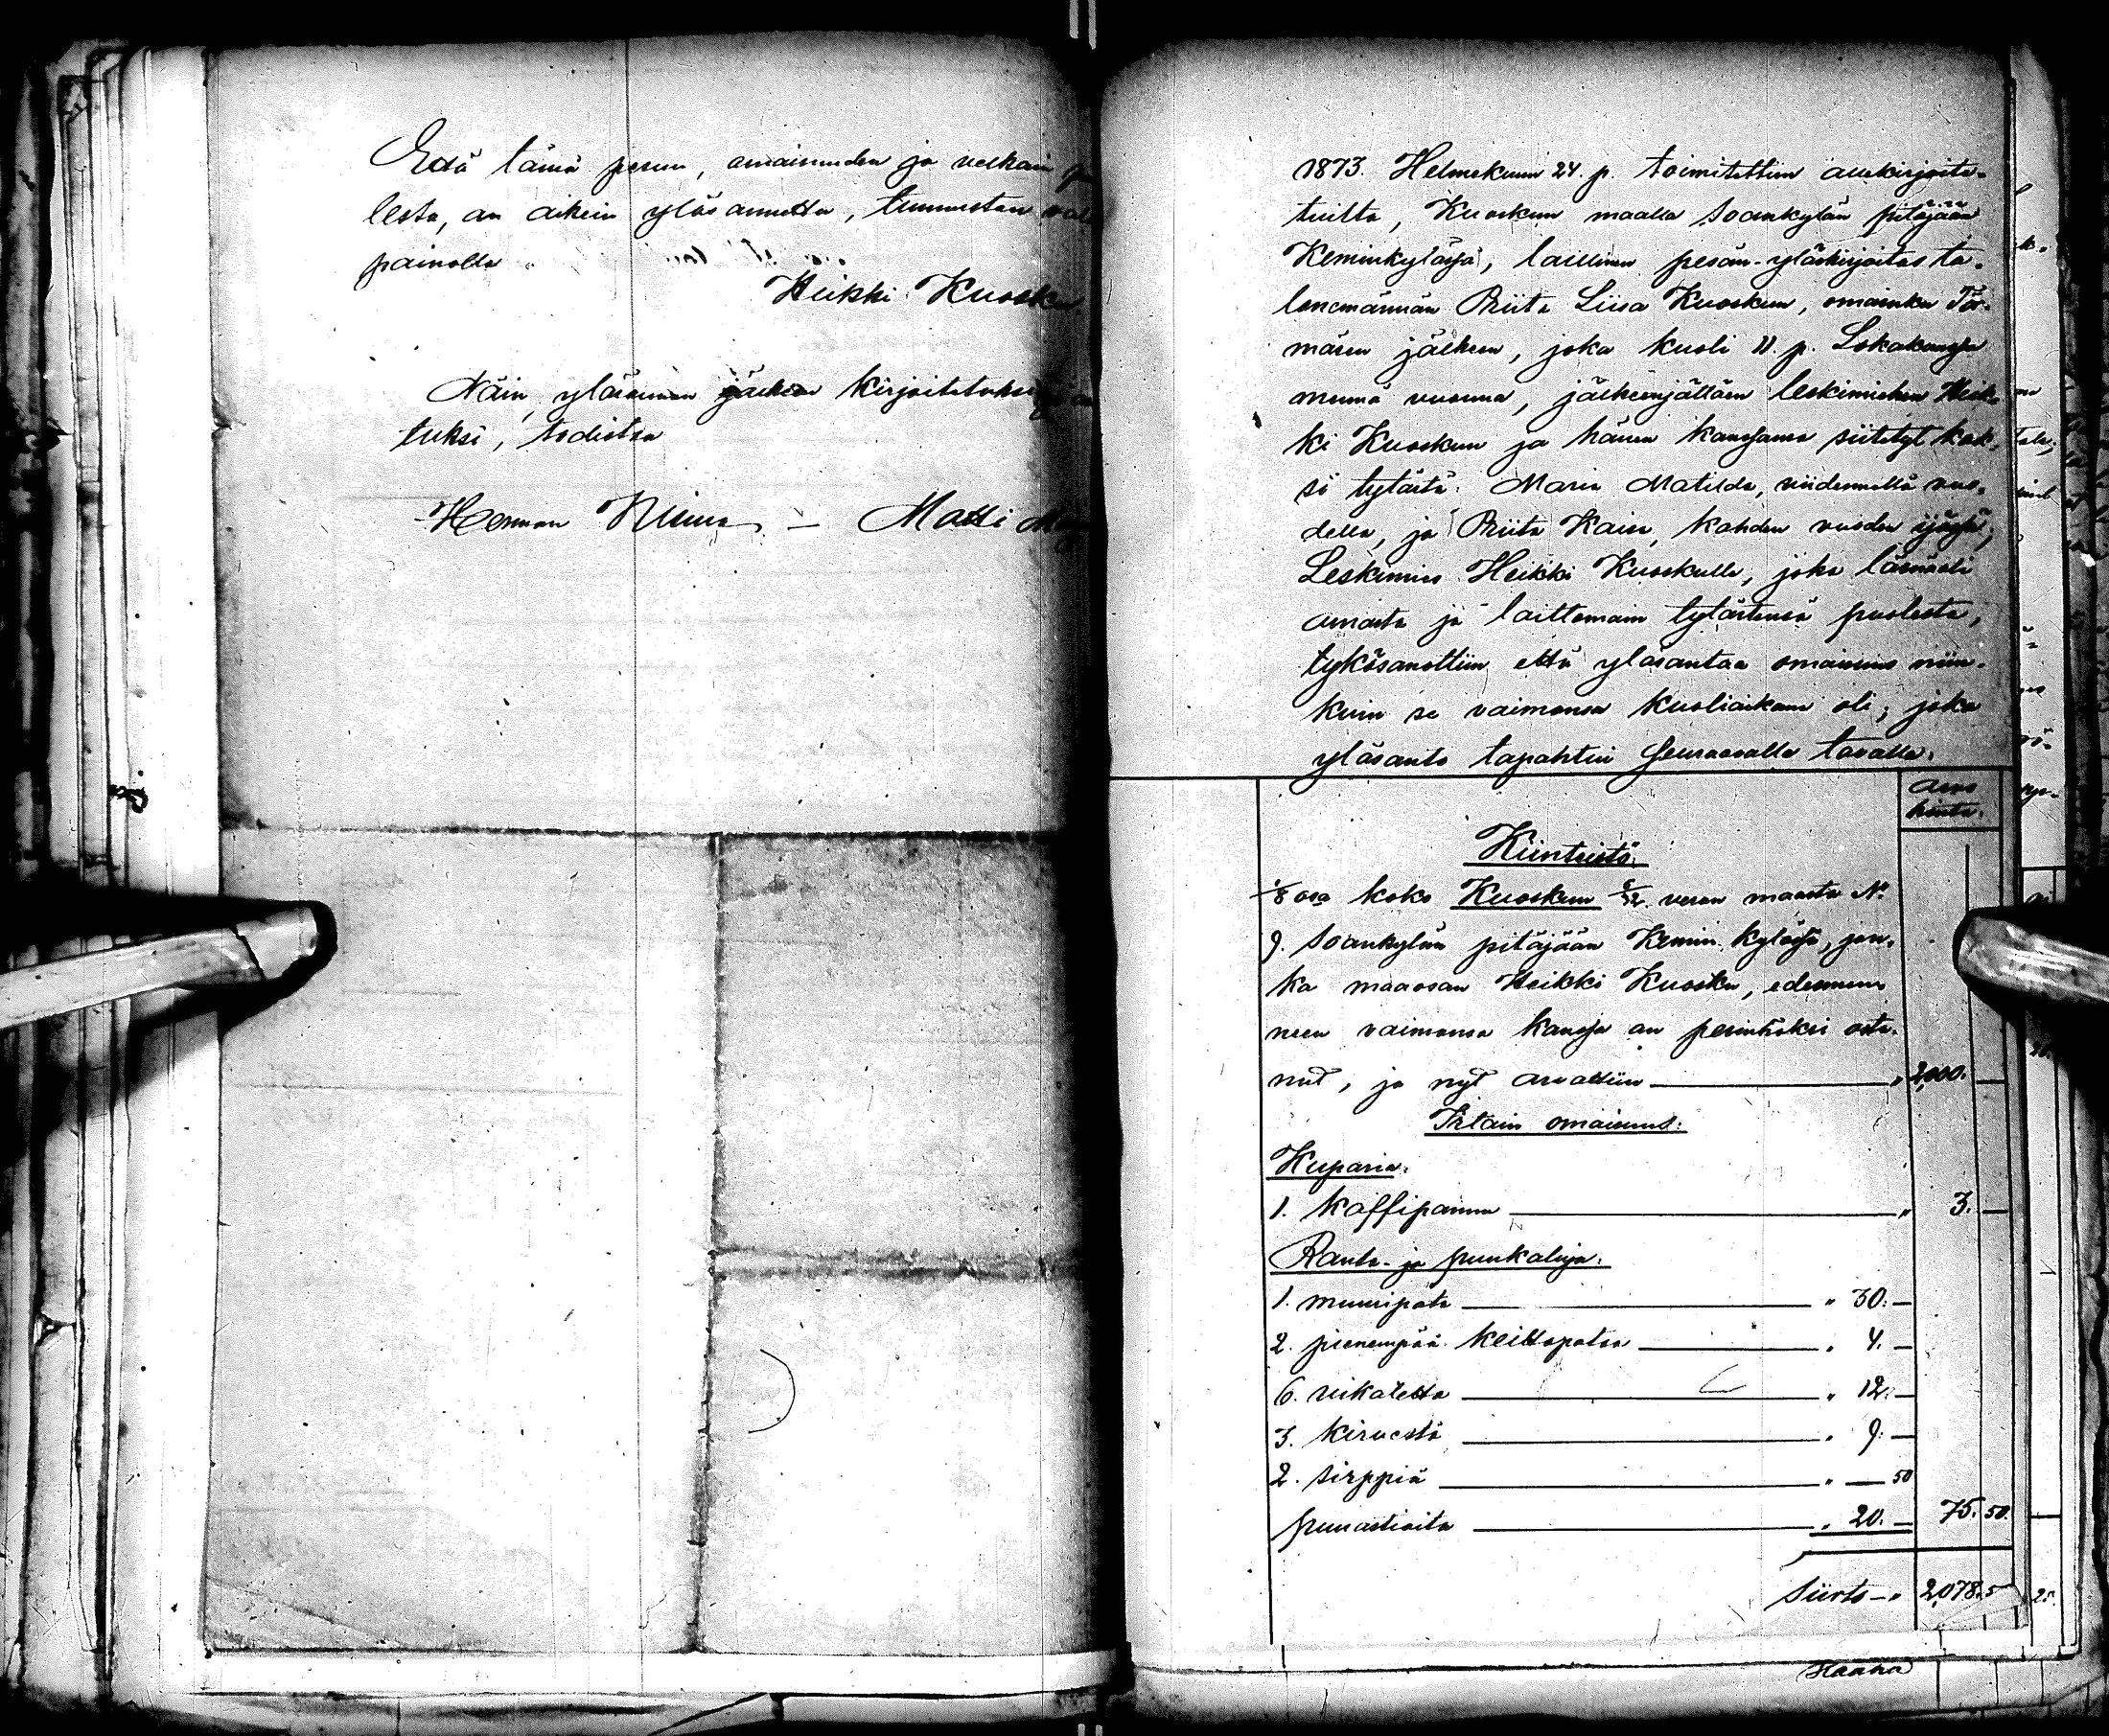 Että tämä pesän, omaisuuden ja velkain
lesta, on oikein ylösannettu, tunnustan
painolla
Heikki Kuosku.
Näin, ylösannon jälkeen kirjoitetuksi
tuksi, todistaa
Herman Niena — Matti
1873. Helmekuun 24. p. toimitettiin allekirjoite-
tuilta, Kuoskun maalla Soankylän pitäjään
Keminkyläsjä, laillinen pesän-yläskirjoitos ta-
lonemännän Briita Liisa Kuoskun, omasukua Tör-
mäsen jälkeen, joka kuoli 11. p. Lokakuusja
mennä vuonna, jälkeenjättäen leskimiehen Heik-
ki Kuoskun ja hänen kansjansa siitetyt kak-
si tytärtä: Maria Matilda, viidennellä vuo-
della, ja Briita Kaisa, kahden vuoden ijäsjä;
Leskimies Heikki Kuoskulle, joka läsnäoli
omasta ja laittomain tytärtensä puolesta,
tykösanottiin että ylösantaa omaisuus niin-
kuin se vaimonsa kuoliaikana oli; joka
ylösanto tapahtui seuraavalla tavalla:
Arvo
hinta.
Kiinteistö:
1/8 osa koko Kuoskun veron maasta No
9. Soankylän pitäjään Kemin kyläsjä, jon-
ka maaosan Heikki Kuosku, edesmen-
neen vaimonsa kansja on perintöksi osta-
nut, ja nyt arvattiin — " 2,000. —
Irtain omaisuus:
Kuparia:
1. kaffipannu — " 3. —
Rauta- ja puukaluja:
1. muuripata — " 30. —
2. pienempää keittopataa — " 4. —
6. viikatetta — " 12. —
3. kirvestä — " 9. —
2. sirppiä — " — 50
puuastioita — " 20. — 75. 50.
Siirto — " 2,078. 5